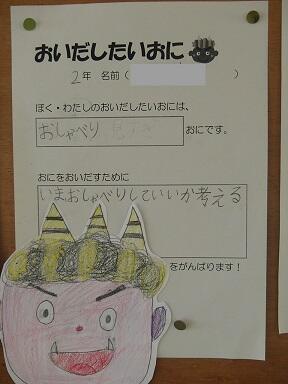 おいだしたいおに
2年 名前( )
ぼく・わたしのおいだしたいおには、
おしゃべり
おにです。
おにをおいだすために
いまおしゃべりしていいか考える
をがんばります！